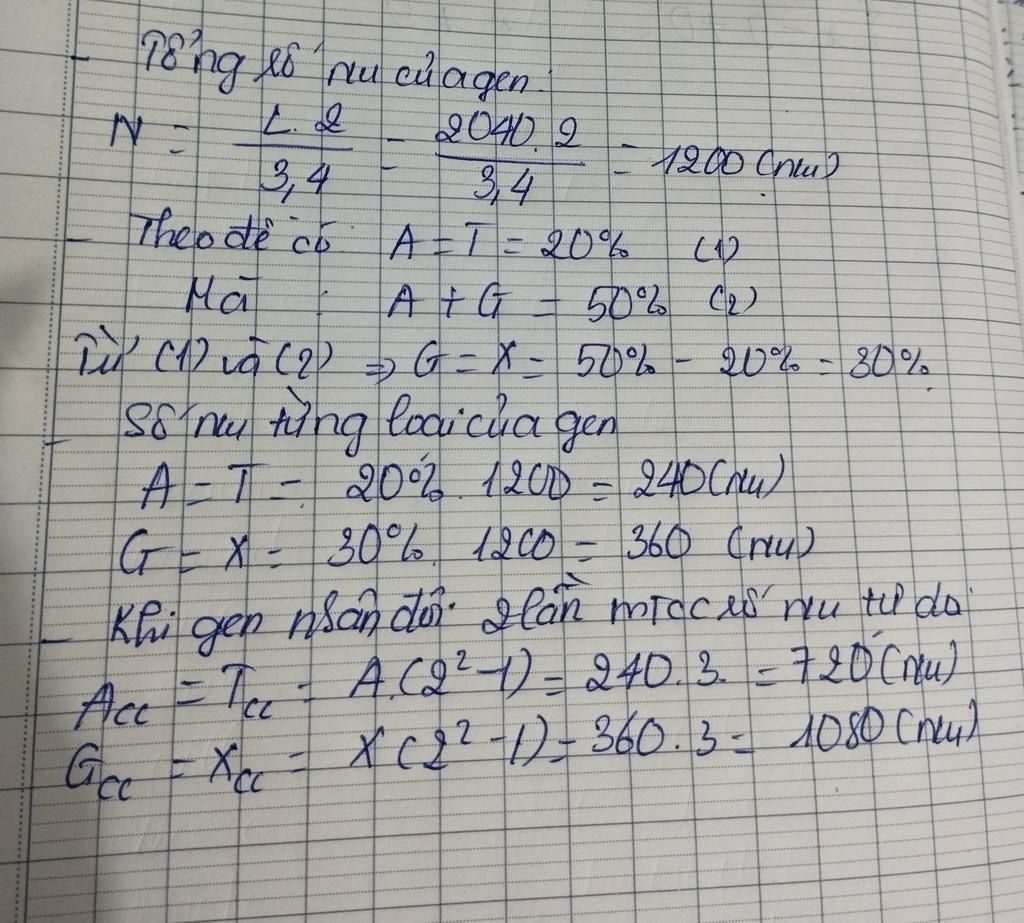 - Tổng số nu của gen:
N = L. 2 / 3,4 = 2040. 2 / 3,4 = 1200 (nu)
- Theo đề có A = T = 20% (1)
Mà : A + G = 50% (2)
Từ (1) và (2) => G = X = 50% - 20% = 30%
- Số nu từng loại của gen
A = T = 20%. 1200 = 240 (nu)
G = X = 30%. 1200 = 360 (nu)
- Khi gen nhân đôi 2 lần mtcc số nu tự do
Acc = Tcc = A.(2² - 1) = 240. 3. = 720 (nu)
Gcc = Xcc = X (2² - 1) = 360. 3 = 1080 (nu)